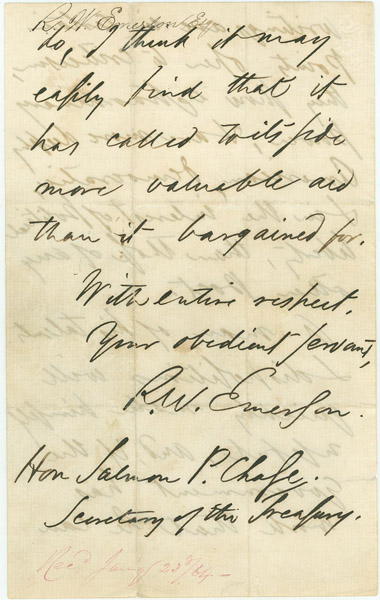 R. W. Emerson Esq
so, I think it may
easily find that it
has called to its side
more valuable aid
than it bargained for.
With entire respect,
Your obedient servant,
R. W. Emerson.
Hon Salmon P. Chase.
Secretary of the Treasury.
Rec'd Jany 23d/64